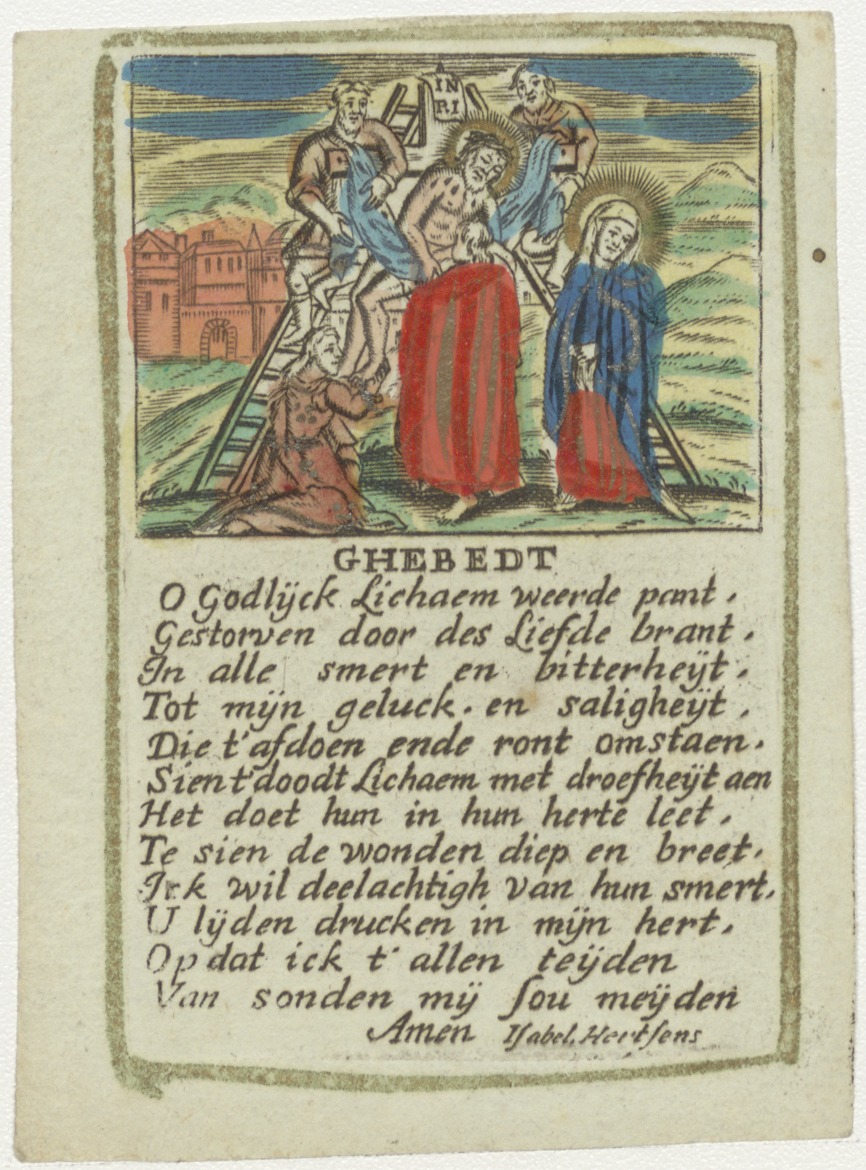 IN
RI
GHEBEDT
O Godlijck Lichaem weerde pant,
Gestorven door des Liefde brant,
In alle smert en bitterheijt,
Tot mijn geluck, en saligheijt,
Die t'afdoen ende ront omstaen,
Sien t'doodt Lichaem met droefheijt aen
Het doet hun in hun herte leet,
Te sien de wonden diep en breet,
Ick wil deelachtigh van hun smert,
U lijden drucken in mijn hert,
Op dat ick t' allen teijden
Van sonden mij sou meijden
Amen Isabel. Hertsens